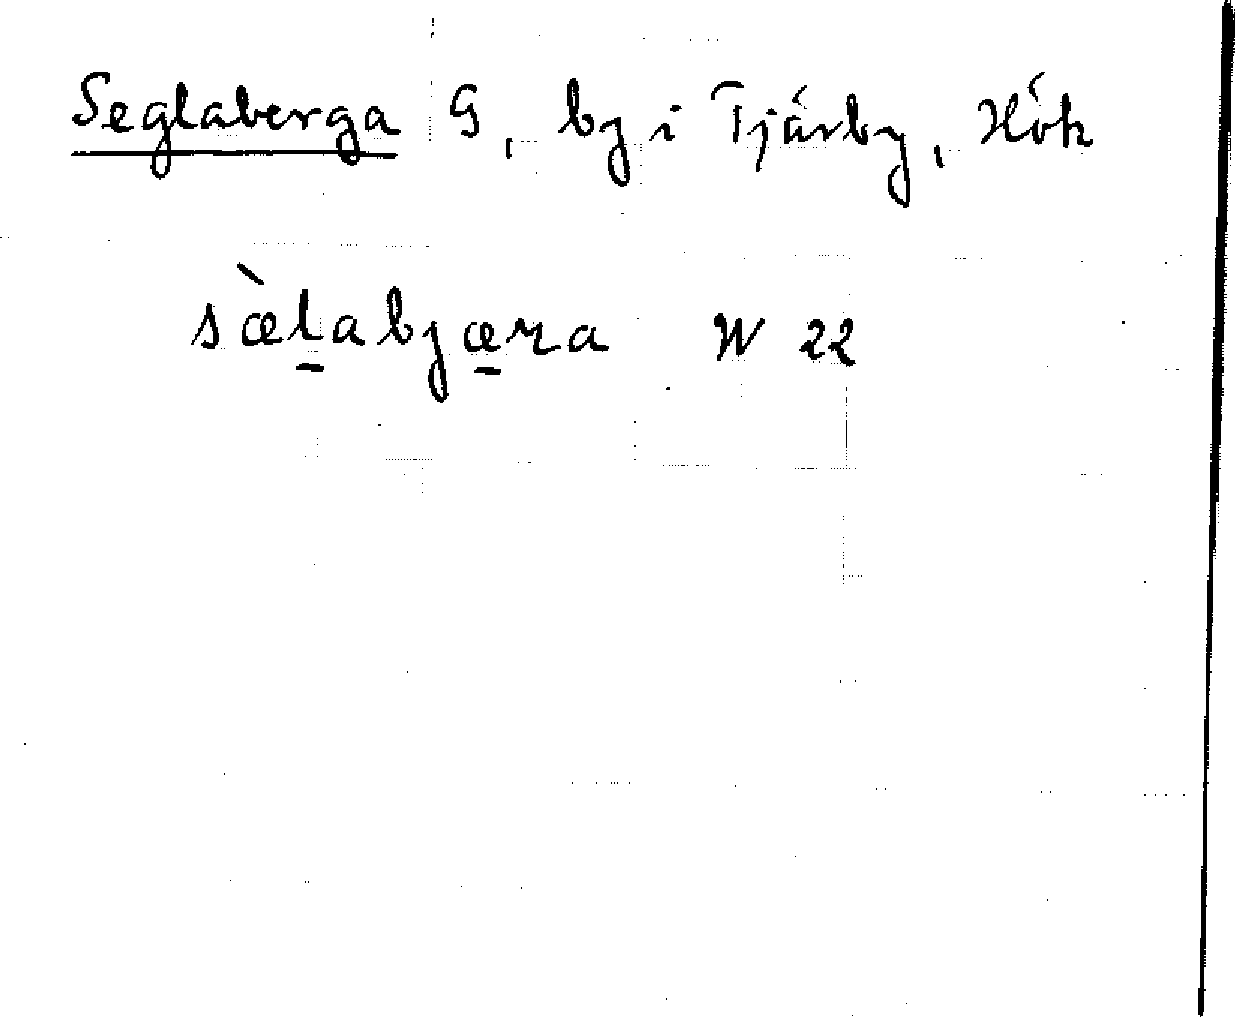 Seglaberga G, by i Tjärby, Hök
sæ̀l̠abjæ̠ra W 22